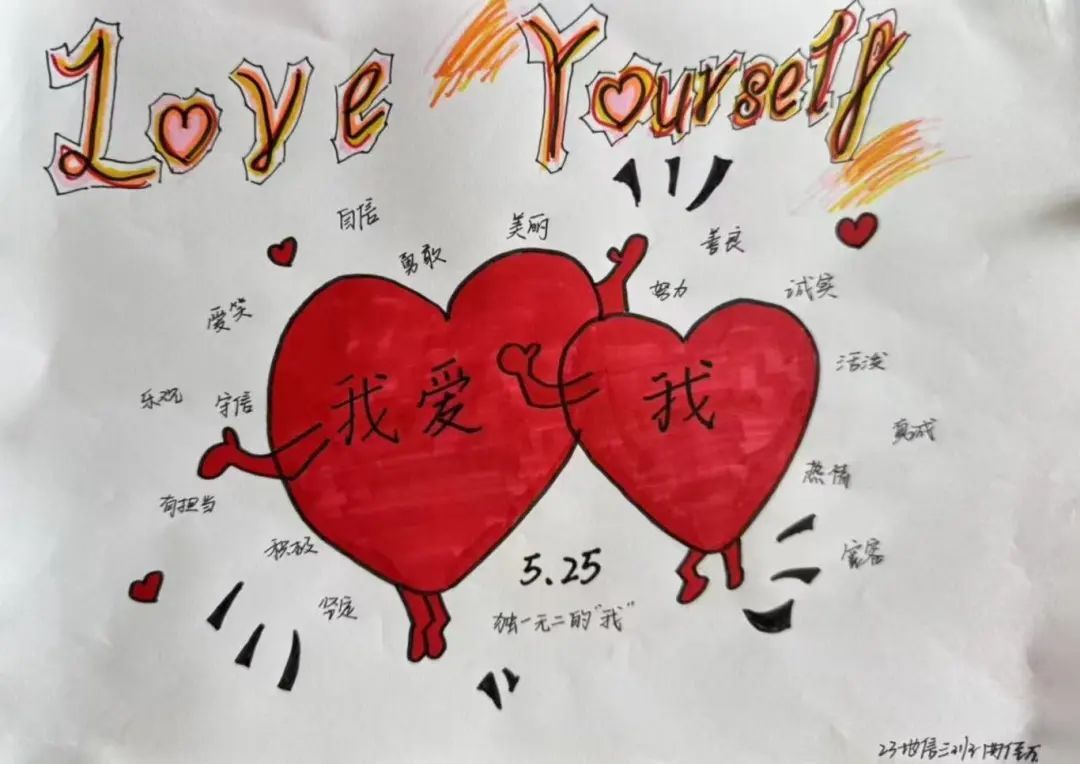 Love Yourself
自信
美丽
勇敢
善良
努力
诚实
爱笑
活泼
乐观
守信
真诚
热情
有担当
积极
宽容
坚定
我爱
我
5.25
独一无二的“我”